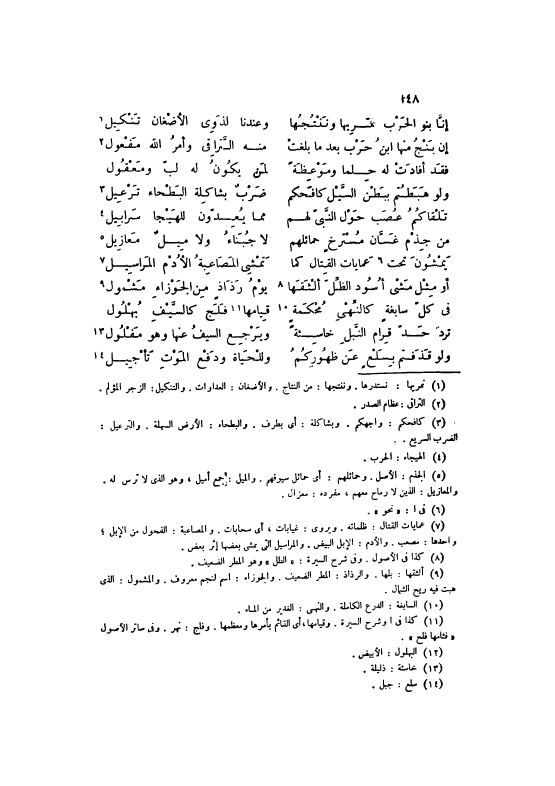 ١٤٨
إنَّا بنو الحَرْب نَمْريها ونَنْتُجُها وعندنا لذوى الأضْغان تَنْكيل١
إن يَنْجُ منها ابنُ حَرْب بعد ما بلغتْ منه التَّراقى وأمرُ الله مَفْعول٢
فقد أفادتْ له حِلما ومَوْعظةً لمن يكونُ له لبّ ومَعْقول
ولو هبَطْتم ببَطْن السَّيْل كافَحكم ضَرْبٌ بشاكلة البَطْحاء تَرْعيل٣
تَلْقاكمُ عُصَب حَوْل النَّبىّ لهم مما يُعِدّون للهَيْجا سَرابيل٤
من جِذْم غَسَّان مُسْترخٍ حمائلهم لا جُبناءُ ولا مِيلٌ مَعازيل٥
يَمْشُون تحت ٦ عَمايات القِتال كما تَمْشى المَصَاعبةُ الأُدْم المَراسيل٧
أو مِثْل مَشْى أُسود الظلّ ألْثقها ٨ يومُ رَذاذٍ من الجَوْزاء مَشْمول٩
فى كلّ سابغةٍ كالنِّهْى مُحْكمةٍ ١٠ قيامها١١ فَلَج كالسَّيْف بُهلول١٢
تردّ حَدّ قِرام النَّبل خاسئةً ويَرْجع السيفُ عنها وهو مَفْلول١٣
ولو قذفتم بسَلْعٍ عن ظهوركمُ وللحَياة ودَفع المَوْتِ تأجيل١٤
(١) نمريها : نستدرها . وننتجها : من النتاج . والأضغان : العداوات . والتنكيل : الزجر المؤلم .
(٢) التراق : عظام الصدر .
(٣) كافحكم : واجهكم . وبشاكلة : أى بطرف . والبطحاء : الأرض السهلة . والترعيل :
الضرب السريع .
(٤) الهيجاء : الحرب .
(٥) الجذم : الأصل . وحمائلهم : أى حمائل سيوفهم . والميل : جمع أميل ، وهو الذى لا ترس له .
والمعازيل : الذين لا رماح معهم ، مفرده : معزال .
(٦) فى ا : « نحو » .
(٧) عمايات القتال : ظلماته . ويروى : غيابات ، أى سحابات . والمصاعبة : الفحول من الإبل ؛
واحدها : مصعب . والأدم : الإبل البيض . والمراسيل التى يمشى بعضها إثر بعض .
(٨) كذا فى الأصول . وفى شرح السيرة : « الطلل » وهو المطر الضعيف .
(٩) ألثقها : بلها . والرذاذ : المطر الضعيف . والجوزاء : اسم لنجم معروف . والمشمول : الذى
هبت فيه ريح الشمال .
(١٠) السابغة : الدرع الكاملة . والنهى : الغدير من الماء .
(١١) كذا فى ا وشرح السيرة . وقيامها ، أى القائم بأمرها ومعظمها . وفلج : نهر . وفى سائر الأصول
« فثامها فلج » .
(١٢) البهلول : الأبيض .
(١٣) خاسئة : ذليلة .
(١٤) سلع : جبل .